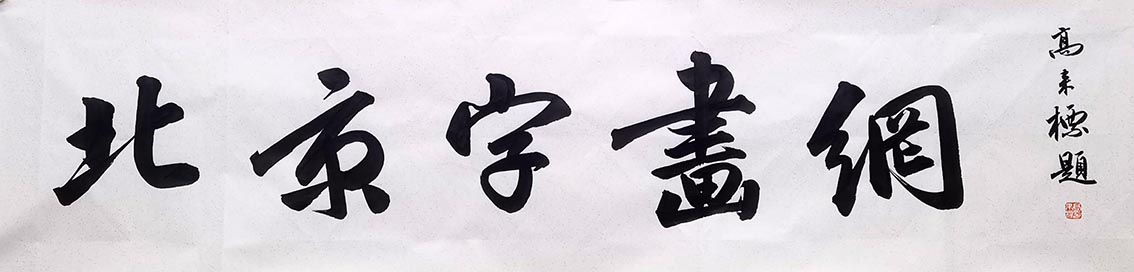 北京字畫網
高來標題